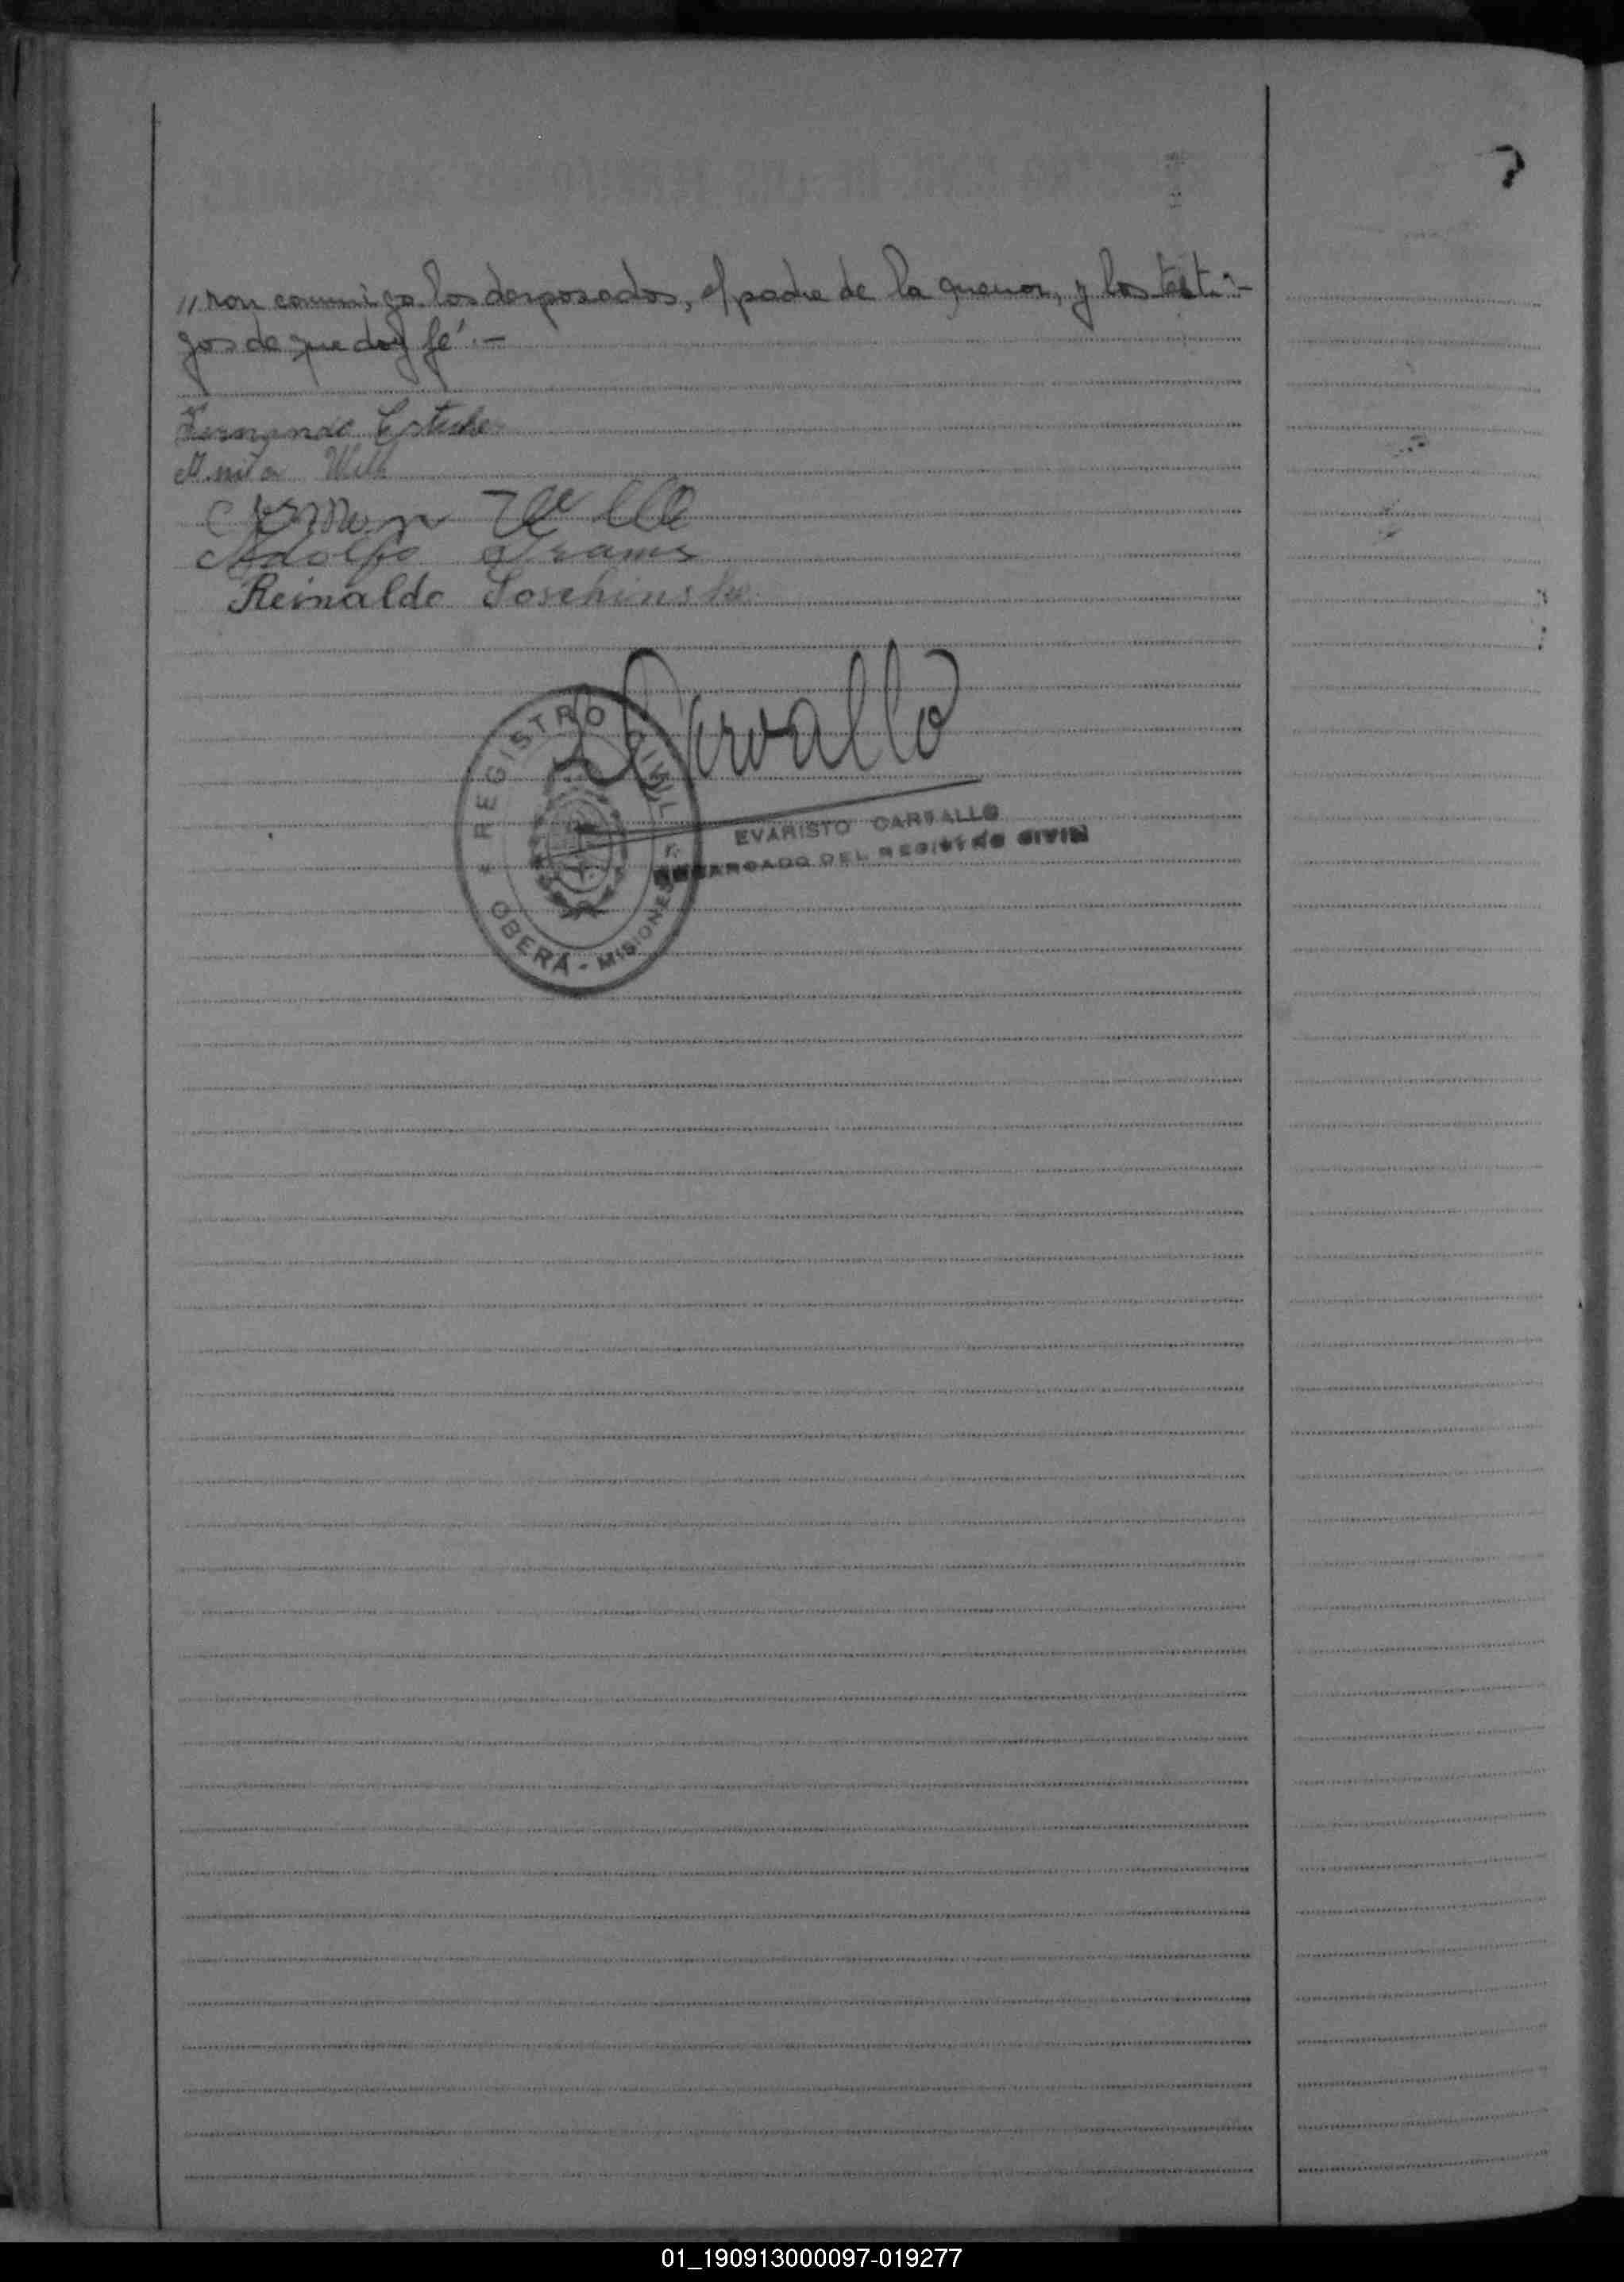 "ron conmigo los desposados, el padre de la menor, y los testi-
gos de que doy fé.-
Fernando
Anita Will
German Wille
Adolfo
Reinaldo Soschinske
Carvallo
REGISTRO CIVIL
OBERÁ - MISIONES
EVARISTO CARVALLO
ENCARGADO DEL REGISTRO CIVIL
01_190913000097-019277